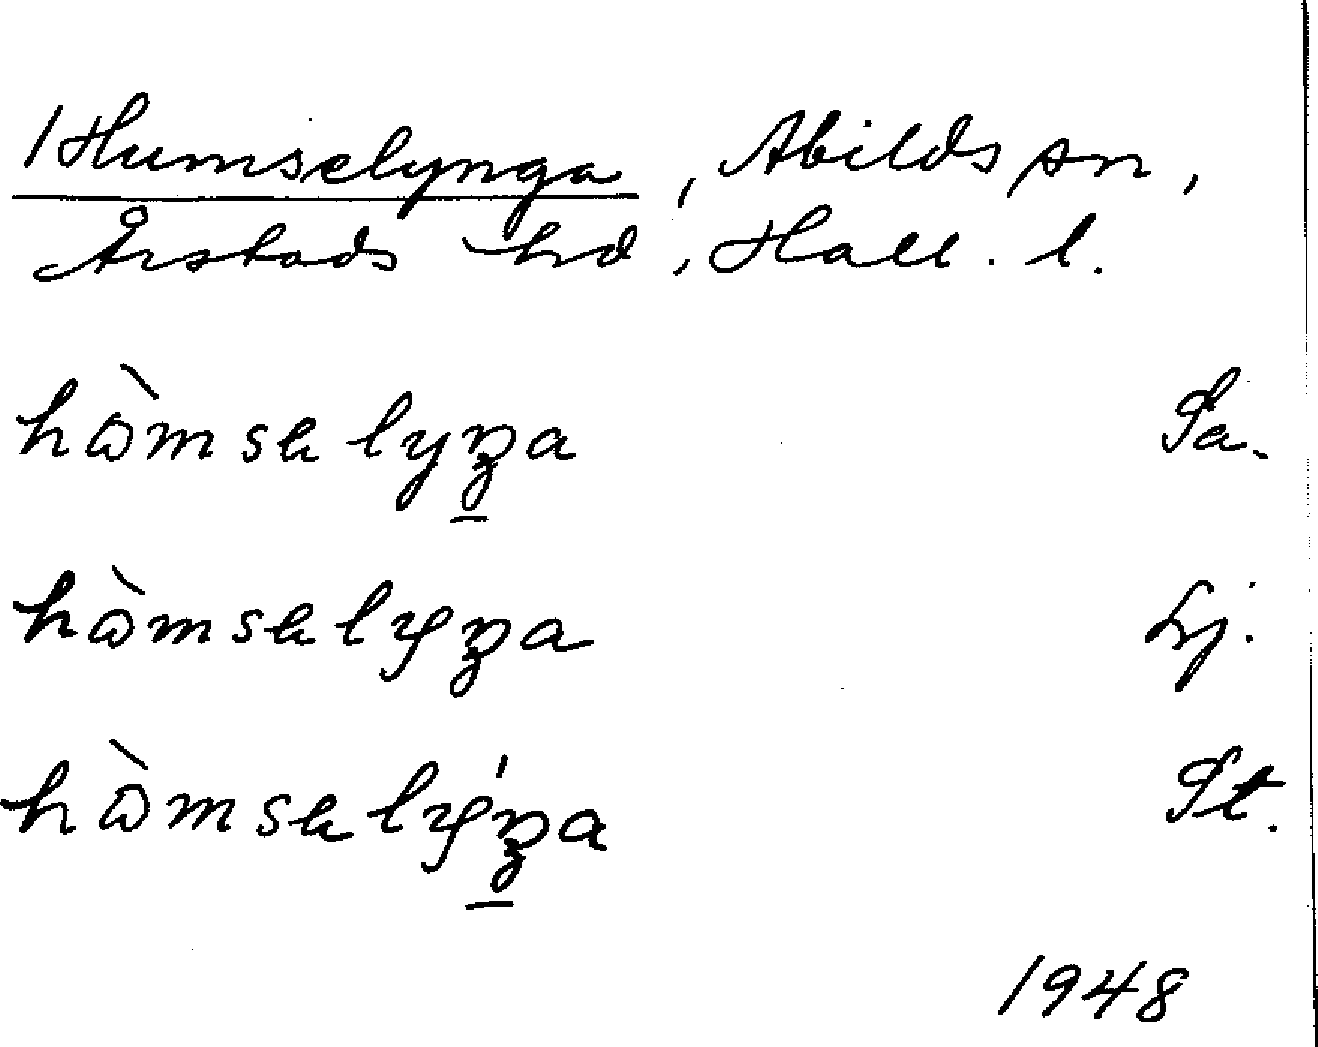 Humselynga, Abilds sn,
Årstads hd, Hall. l.
hòmsəlyŋa Sa.
hòmsəlyŋa Lj.
hòmsəlýŋa St.
1948